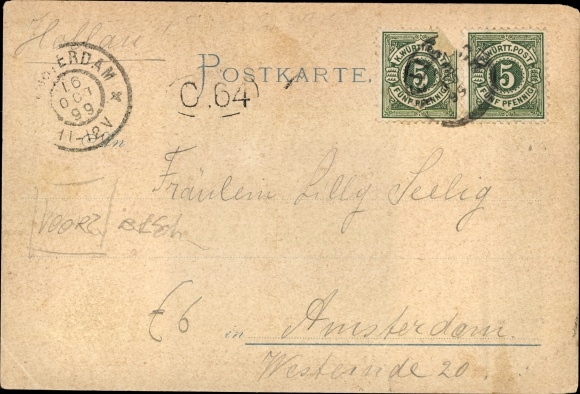 Holland
POSTKARTE.
K. WÜRTT. POST
5 5
FÜNF PFENNIG
K. WÜRTT. POST
5 5
FÜNF PFENNIG
TERDAM
16
OCT
99
11-12V
C.64
An
Fräulein Lilly Seelig
VOORZ
€6
in Amsterdam.
Westeinde 20.